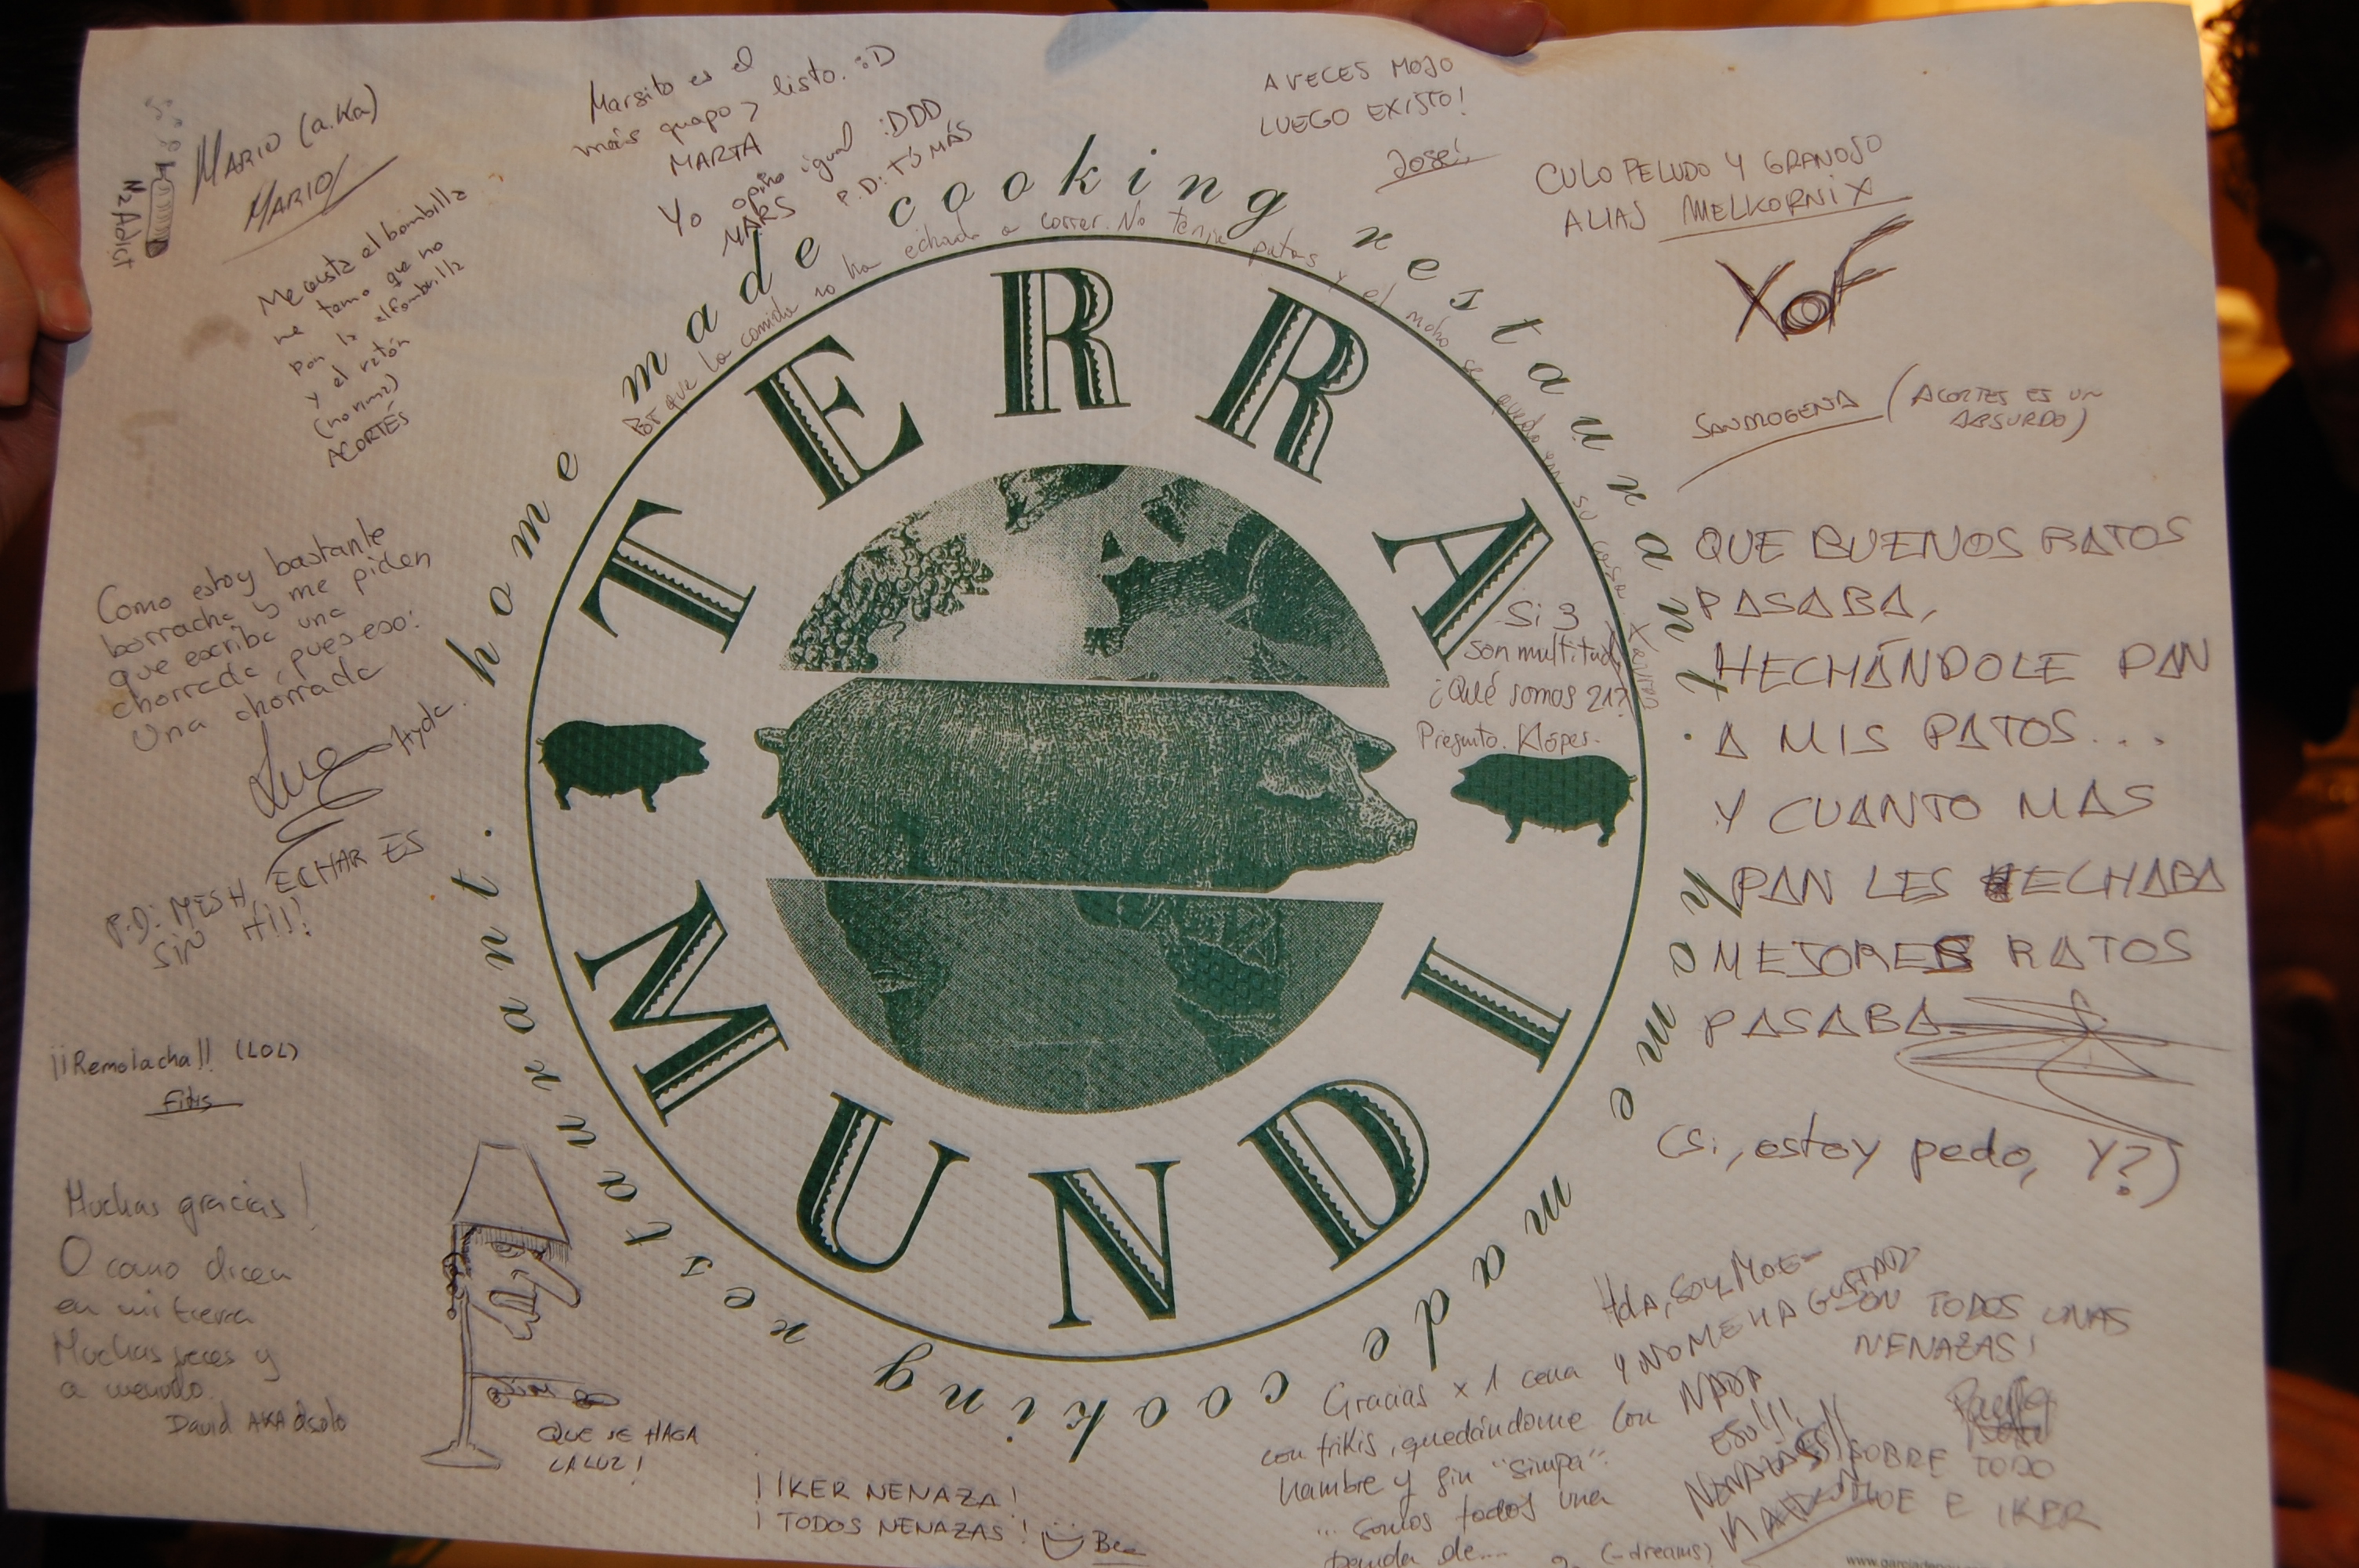 TERRA
MUNDI
home made cooking restaurant.
home made cooking restaurant.
N2 Adict
MARIO (a.Ka)
MARIO
Marsito es el
más guapo y listo. :D
MARTA
Yo opino igual :DDD
MARS P.D: TÚ MÁS
A VECES MOJO
LUEGO EXISTO!
José
CULO PELUDO Y GRANOSO
ALIAS MELKORNIX
XOF
SANMOGENA (ACORTES ES UN
ABSURDO)
Me gusta el bombilla
me temo que no
por la alfombrilla
y el ratón
(no rima)
ACORTÉS
Por que la comida no ha echado a correr. No tenía patas y el moho se quedo en su casa.
Como estoy bastante
borracha y me piden
que escriba una
chorrada, pues eso:
Una chorrada
P.D: MESH, ECHAR ES
SIN H!!!
Si 3
son multitud
¿Qué somos 21?
Pregunto. Klópes.
QUE BUENOS RATOS
PASABA,
HECHÁNDOLE PAN
A MIS PATOS...
Y CUANTO MAS
PAN LES ECHABA
MEJORES RATOS
PASABA
(Si, estoy pedo, Y?)
¡¡Remolacha!! (LOL)
Fitis
Muchas gracias!
O como dicen
en mi tierra
Muchas veces y
a menudo.
David AKA dsolo
QUE SE HAGA
LA LUZ!
¡IKER NENAZA!
¡TODOS NENAZAS!
Bee
HOLA, SOY MOE
Y NO ME HA GUSTADO
NADA
ESO!!!
SON TODOS UNAS
NENAZAS!
SOBRE TODO
MOE E IKER
Gracias x 1 cena
con frikis, quedándome con
hambre y sin "simpa".
... somos todos una
panda de....
(-dreams)